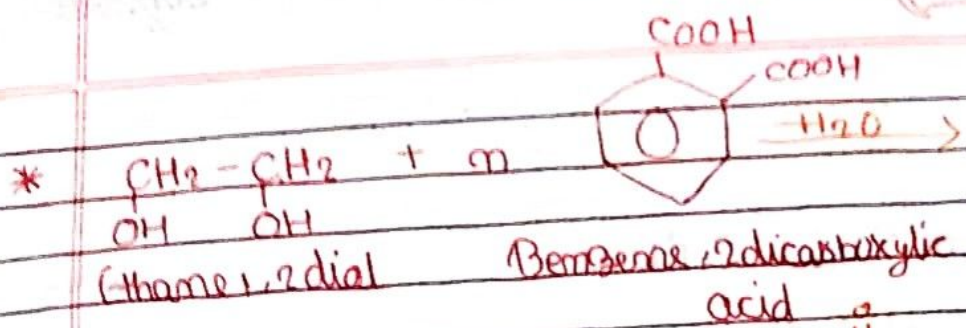 COOH
COOH
* CH2 - CH2 + n -H2O >
OH OH
Ethane 1,2 diol Benzene 1,2 dicarboxylic
acid